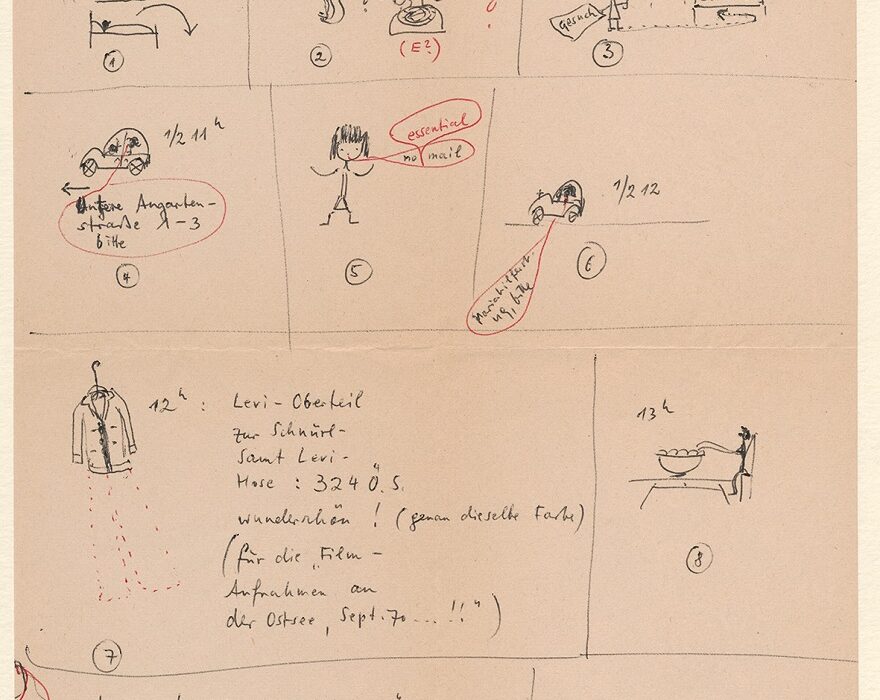 1
2
(E?)
Gesuch
3
1/2 11 h
Untere Augarten-
straße 1-3
bitte
4
essential
no mail
5
1/2 12
Mariahilferst.
bitte
6
12 h : Levi-Oberteil
zur Schnürl-
Samt Levi-
Hose : 324 Ö.S.
wunderschön ! (genau dieselbe Farbe)
(für die „Film-
Aufnahmen an
der Ostsee, Sept. 70 ... !!")
7
13 h
8